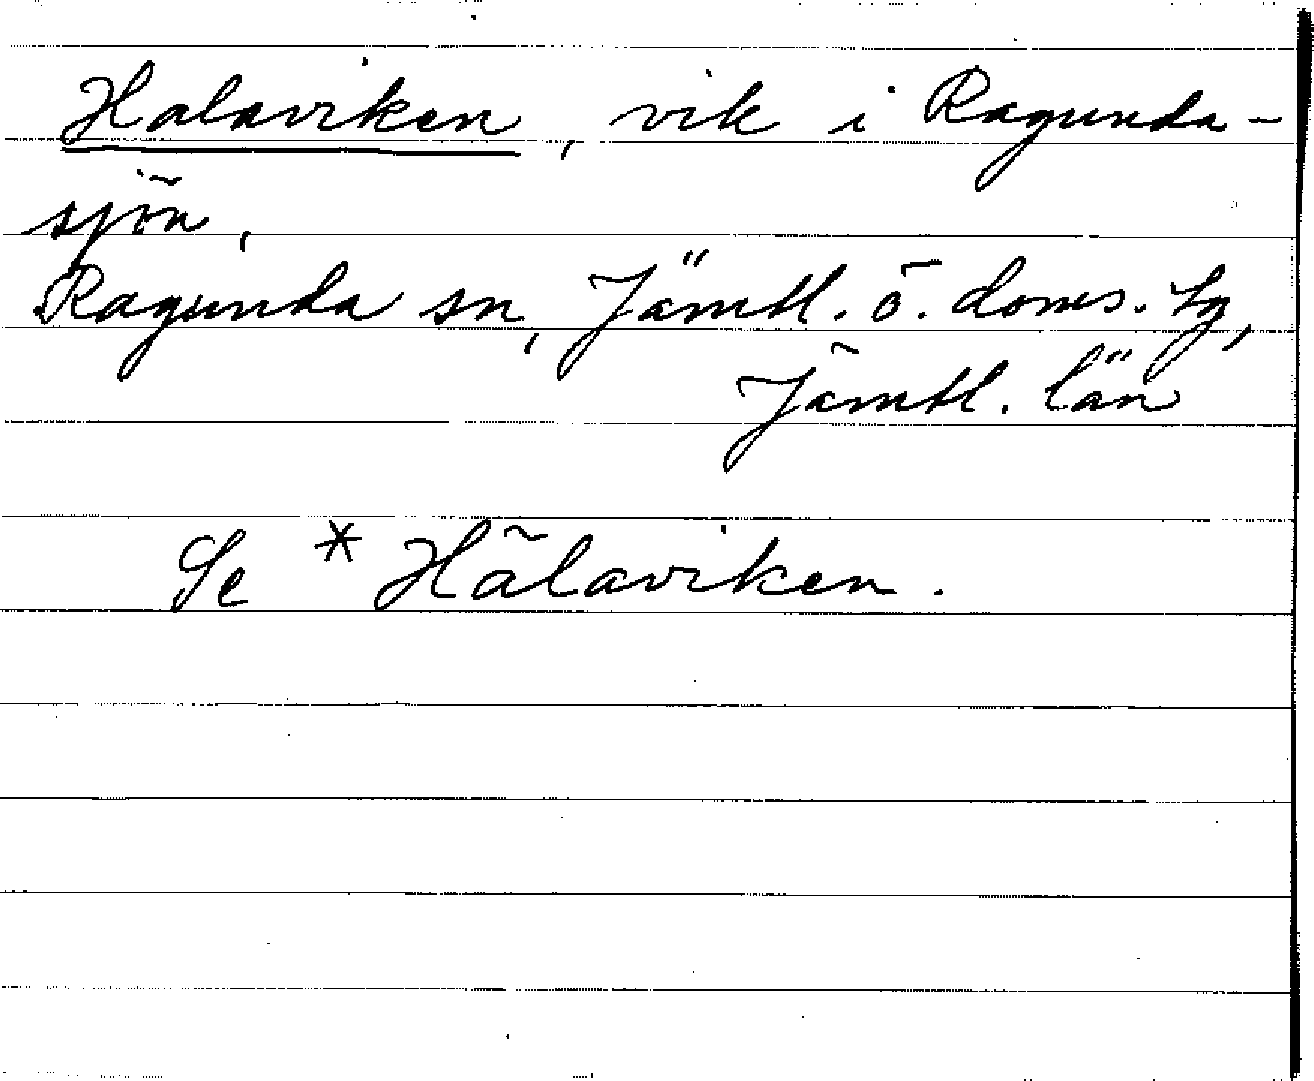 Halaviken, vik i Ragunda-
sjön,
Ragunda sn, Jämtl. ö. doms. tg,
Jämtl. län
Se * Hälaviken.